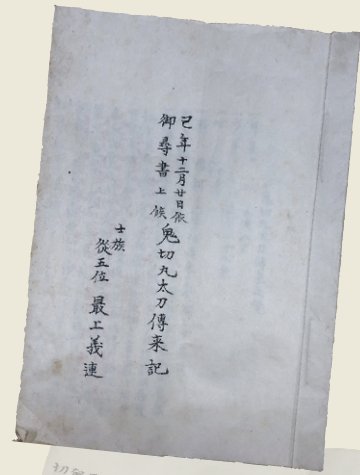 己年十二月廿日依
御尋書上候
鬼切丸太刀傳来記
士族
從五位 最上義連